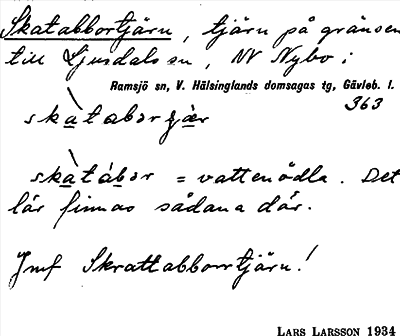 Skatabbortjärn, tjärn på gränsen
till Ljusdals sn, NV Nybo i
Ramsjö sn, V. Hälsinglands domsagas tg, Gävleb. l.
363
skàtabərʒær
skàtábər = vattenödla. Det
lär finnas sådana där.
Jmf Skrattabborrtjärn!
LARS LARSSON 1934